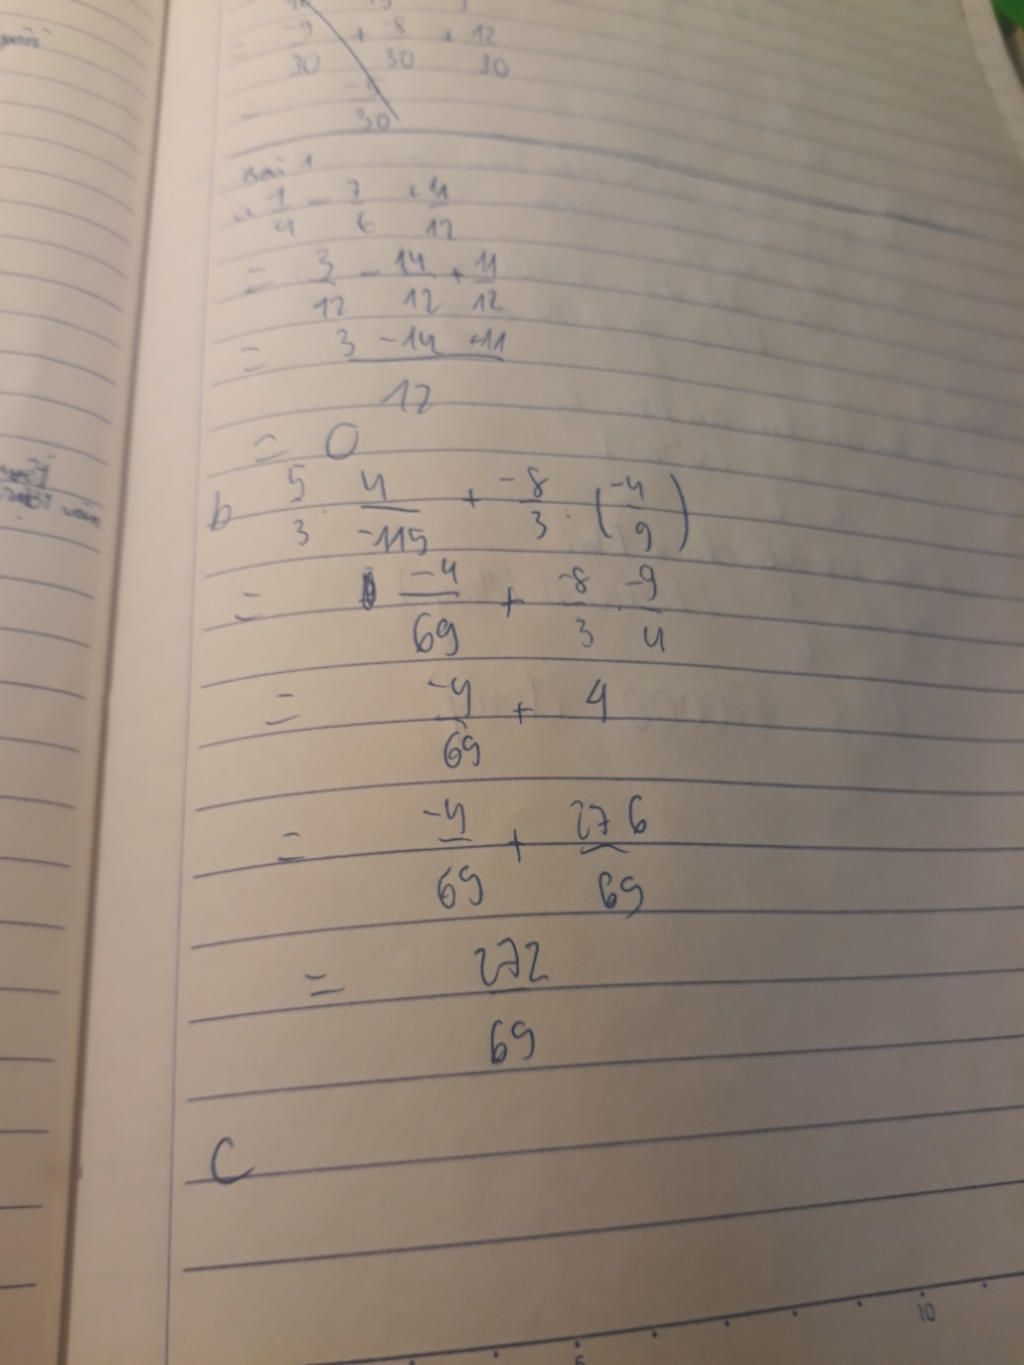 = -9/30 + -8/30 + 12/30
= /30
Bài 1
1/4 - 7/6 + 11/12
= 3/12 - 14/12 + 11/12
= (3 - 14 + 11)/12
= 0
b 5/3 . 4/-115 + -8/3 : (-4/9)
= -4/69 + -8/3 . -9/4
= -4/69 + 4
= -4/69 + 276/69
= 272/69
C
5 10